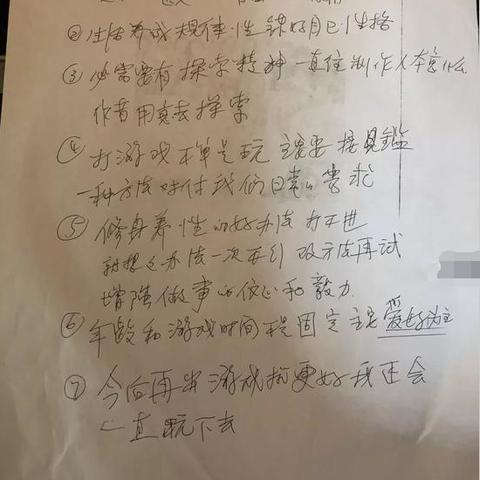 ② 生活养成规律性 锻好自己性格
③ 必需要有探索精神 一直住制作人本意什么
作者用意去探索
④ 打游戏不单是玩 主要要接見鑑
一种方法对付我们日常的需求
⑤ 修身养性的好办法 打不进
就想想办法一次不行 改方法再试
增强做事的信心和毅力
⑥ 年龄和游戏时间不是固定主要爱好为主
⑦ 今后再出游戏抗更好 我还会
一直玩下去